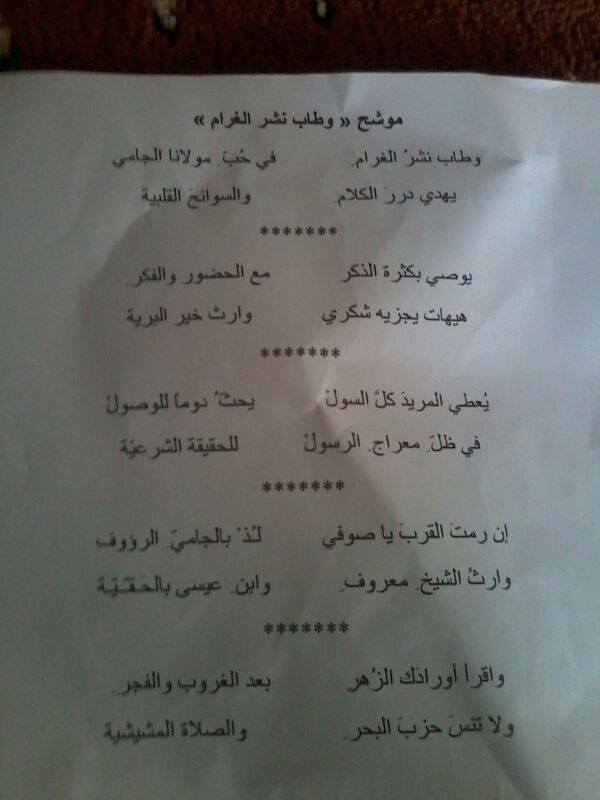 موشح « وطاب نشر الغرام »
وطاب نشرُ الغرامِ في حُبِّ مولانا الجامي
يهدي دررَ الكلامِ والسوانحَ القلبية
*******
يوصي بكثرة الذكر مع الحضور والفكرِ
هيهات يجزيه شكري وارث خير البرية
*******
يُعطي المريدَ كلَّ السولْ يحثُّ دوماً للوصولْ
في ظلِّ معراجِ الرسولْ للحقيقة الشرعيّة
*******
إن رمتَ القربَ يا صوفي لُذْ بالجاميِّ الرؤوفِ
وارثُ الشيخِ معروفِ وابنِ عيسى بالحَقّيّة
*******
واقرأ أورادَك الزُهرِ بعد الغروب والفجرِ
ولا تنسَ حزبَ البحرِ والصلاة المشيشية